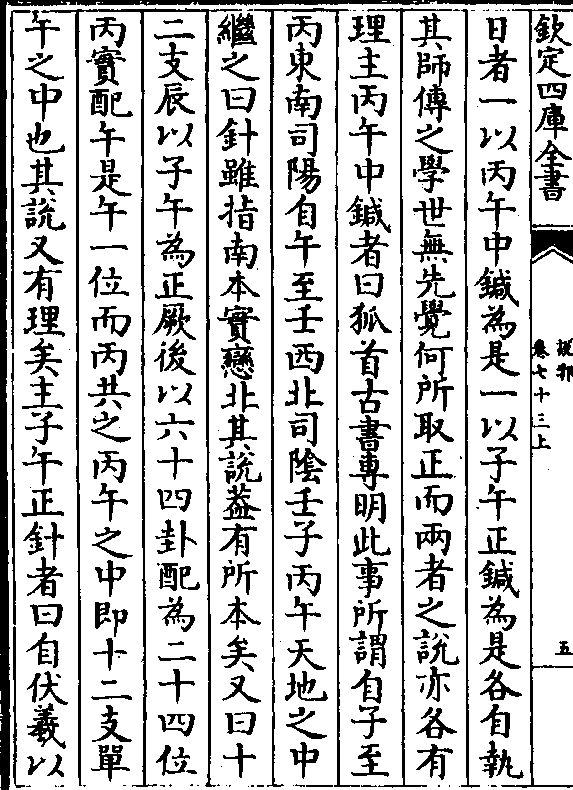 欽定四庫全書
說郛
卷七十三上
五
日者一以丙午中鍼為是一以子午正鍼為是各自執
其師傅之學世無先覺何所取正而兩者之說亦各有
理主丙午中鍼者曰狐首古書專明此事所謂自子至
丙東南司陽自午至壬西北司陰壬子丙午天地之中
繼之曰針雖指南本實戀北其說葢有所本矣又曰十
二支辰以子午為正厥後以六十四卦配為二十四位
丙實配午是午一位而丙共之丙午之中即十二支單
午之中也其說又有理矣主子午正針者曰自伏羲以